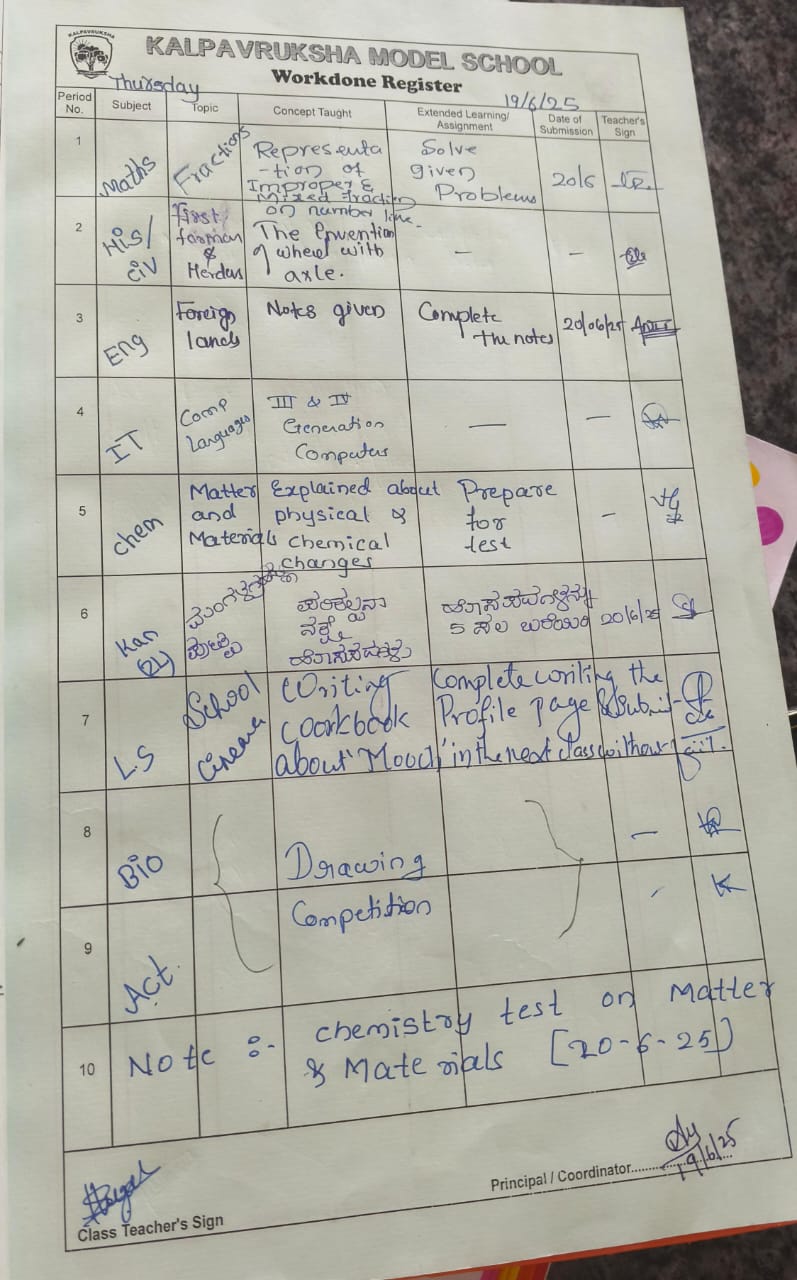 KALPAVRUKSHA
KALPAVRUKSHA MODEL SCHOOL
Workdone Register
Thursday
19/6/25
Period No. Subject Topic Concept Taught Extended Learning/ Assignment Date of Submission Teacher's Sign
1 Maths Fractions Representa Solve 20/6
-tion of given
Improper & Problems
Mixed fraction
on number line.
2 His/ First The Invention — —
Civ farmers of wheel with
& Herders axle.
3 Eng Foreign Notes given Complete 20/06/25
lands the notes
4 IT Comp III & IV — —
Languages Generation
Computers
5 Chem Matter Explained about Prepare –
and physical & for
Materials chemical test
changes
6 Kan 20/6/25
(2L)
ನಕ್ಷೆ 5 ಸಲ ಬರೆಯಿರಿ
7 L.S School Writing Complete writing the
Cinema workbook Profile page & Submit
about 'Mooch' in the next class without fail.
8 Bio Drawing –
9 Act. Competition -
10 Note :- chemistry test on Matter
& Materials [20-6-25]
19/6/25
Principal / Coordinator..................
Class Teacher's Sign